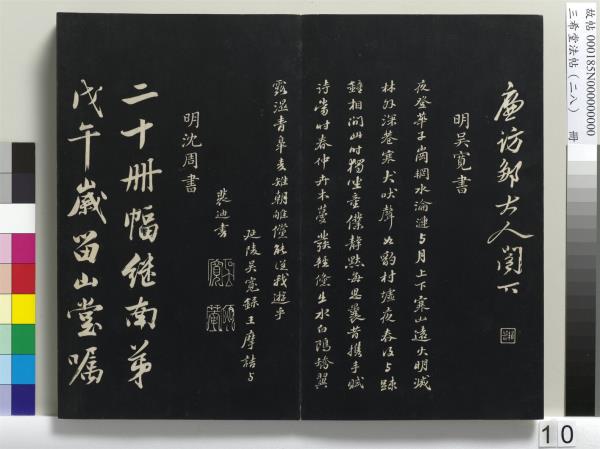 故帖 000185N000000000
三希堂法帖（二八） 冊
廉访鄒大人閣下
明吳寬書
夜登華子崗輞水淪漣与月上下寒山遠火明滅
林外深巷寒犬吠聲如豹村墟夜舂復与疎
鐘相間此时獨坐童僕靜默每思曩昔携手賦
詩當时春仲卉木蔓發輕鯈出水白鷗矯翼
露濕青皋麦雉朝雊儻能從我遊乎
延陵吳寬錄王摩詰与
裴迪書
明沈周書
二十冊幅繼南弟
戊午歲留山堂囑
10